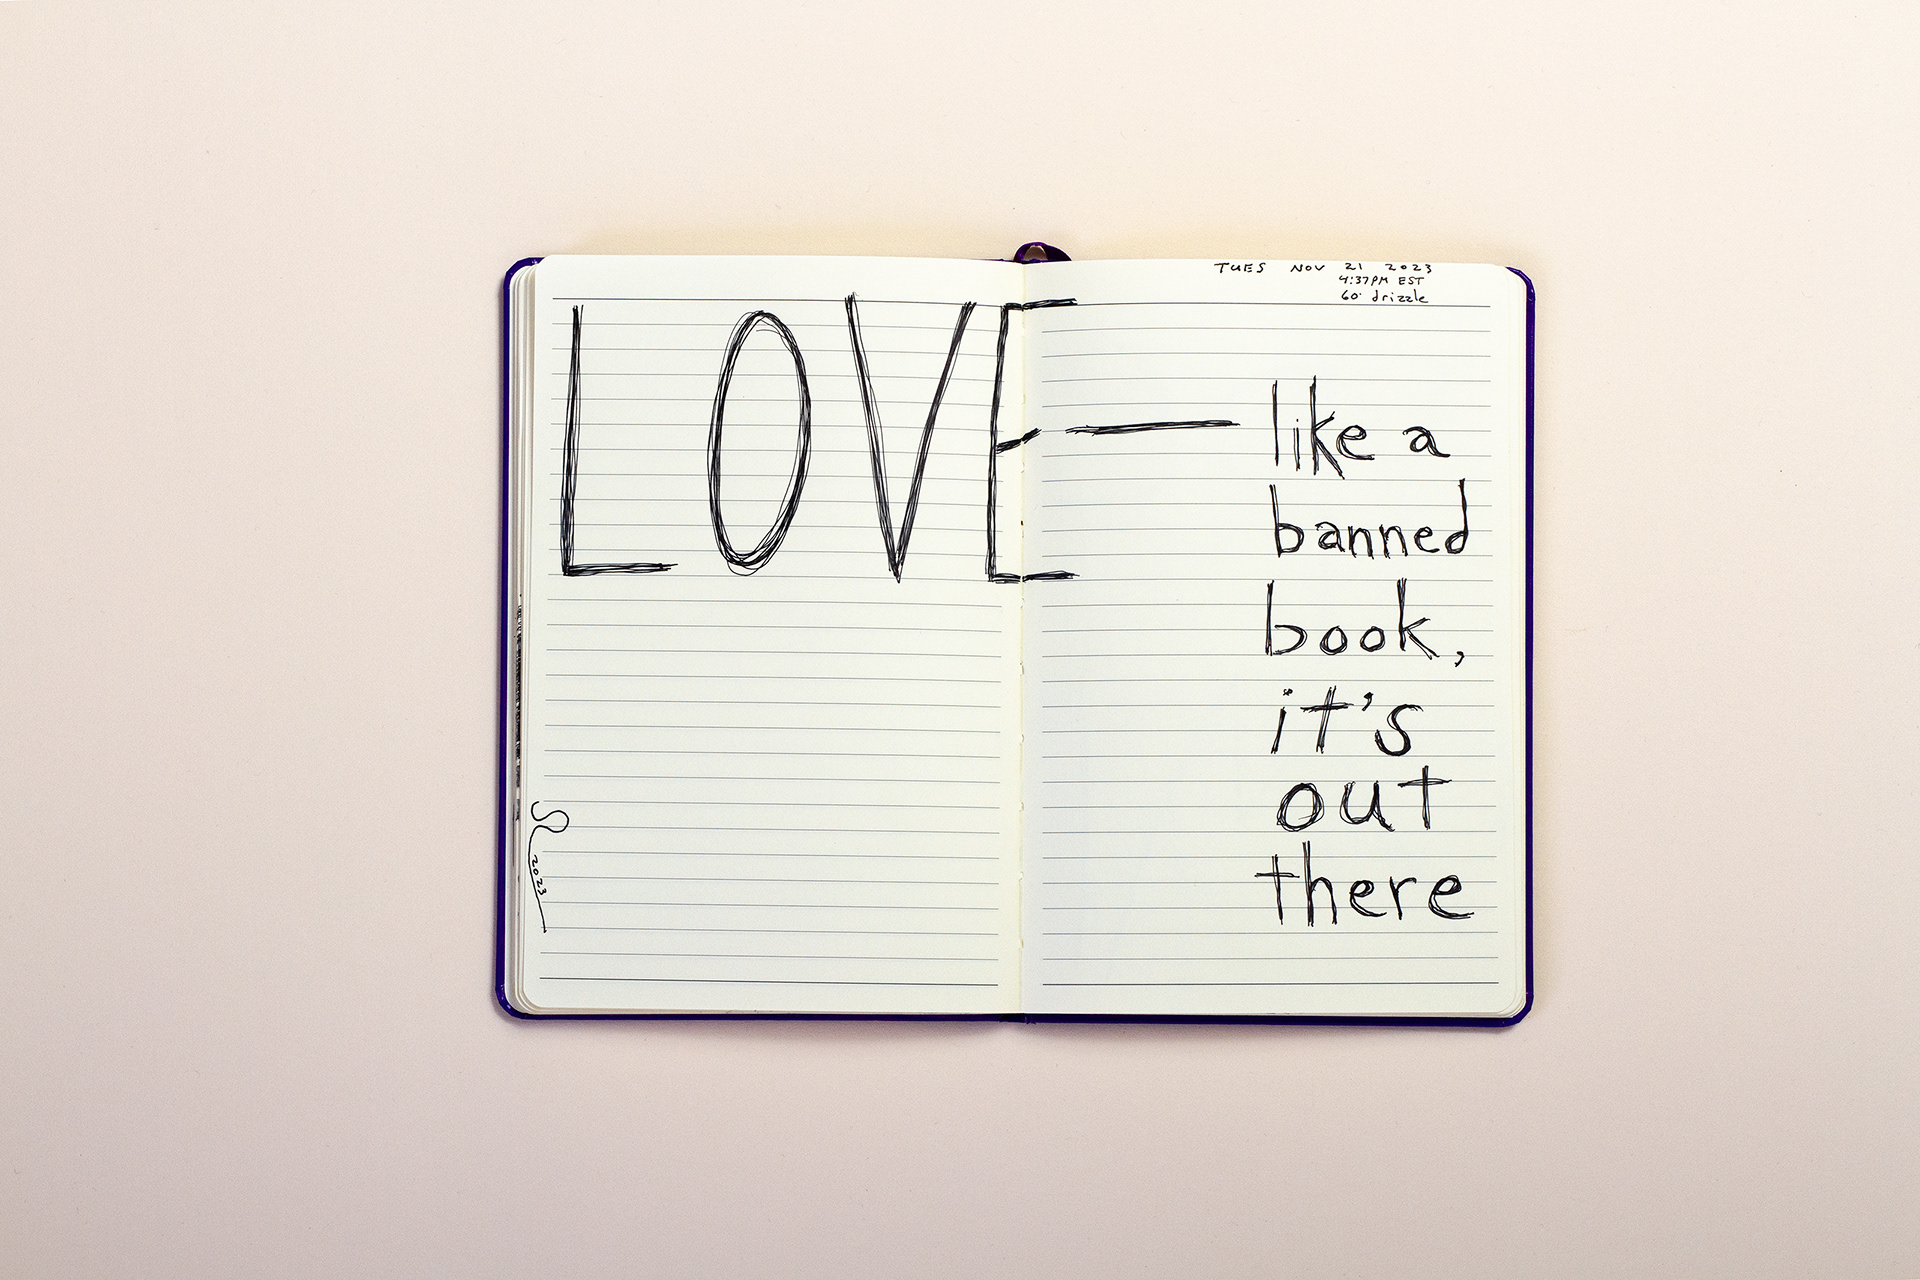 TUES NOV 21 2023
4:37PM EST
60° drizzle
LOVE — like a
banned
book,
it's
out
there
2023